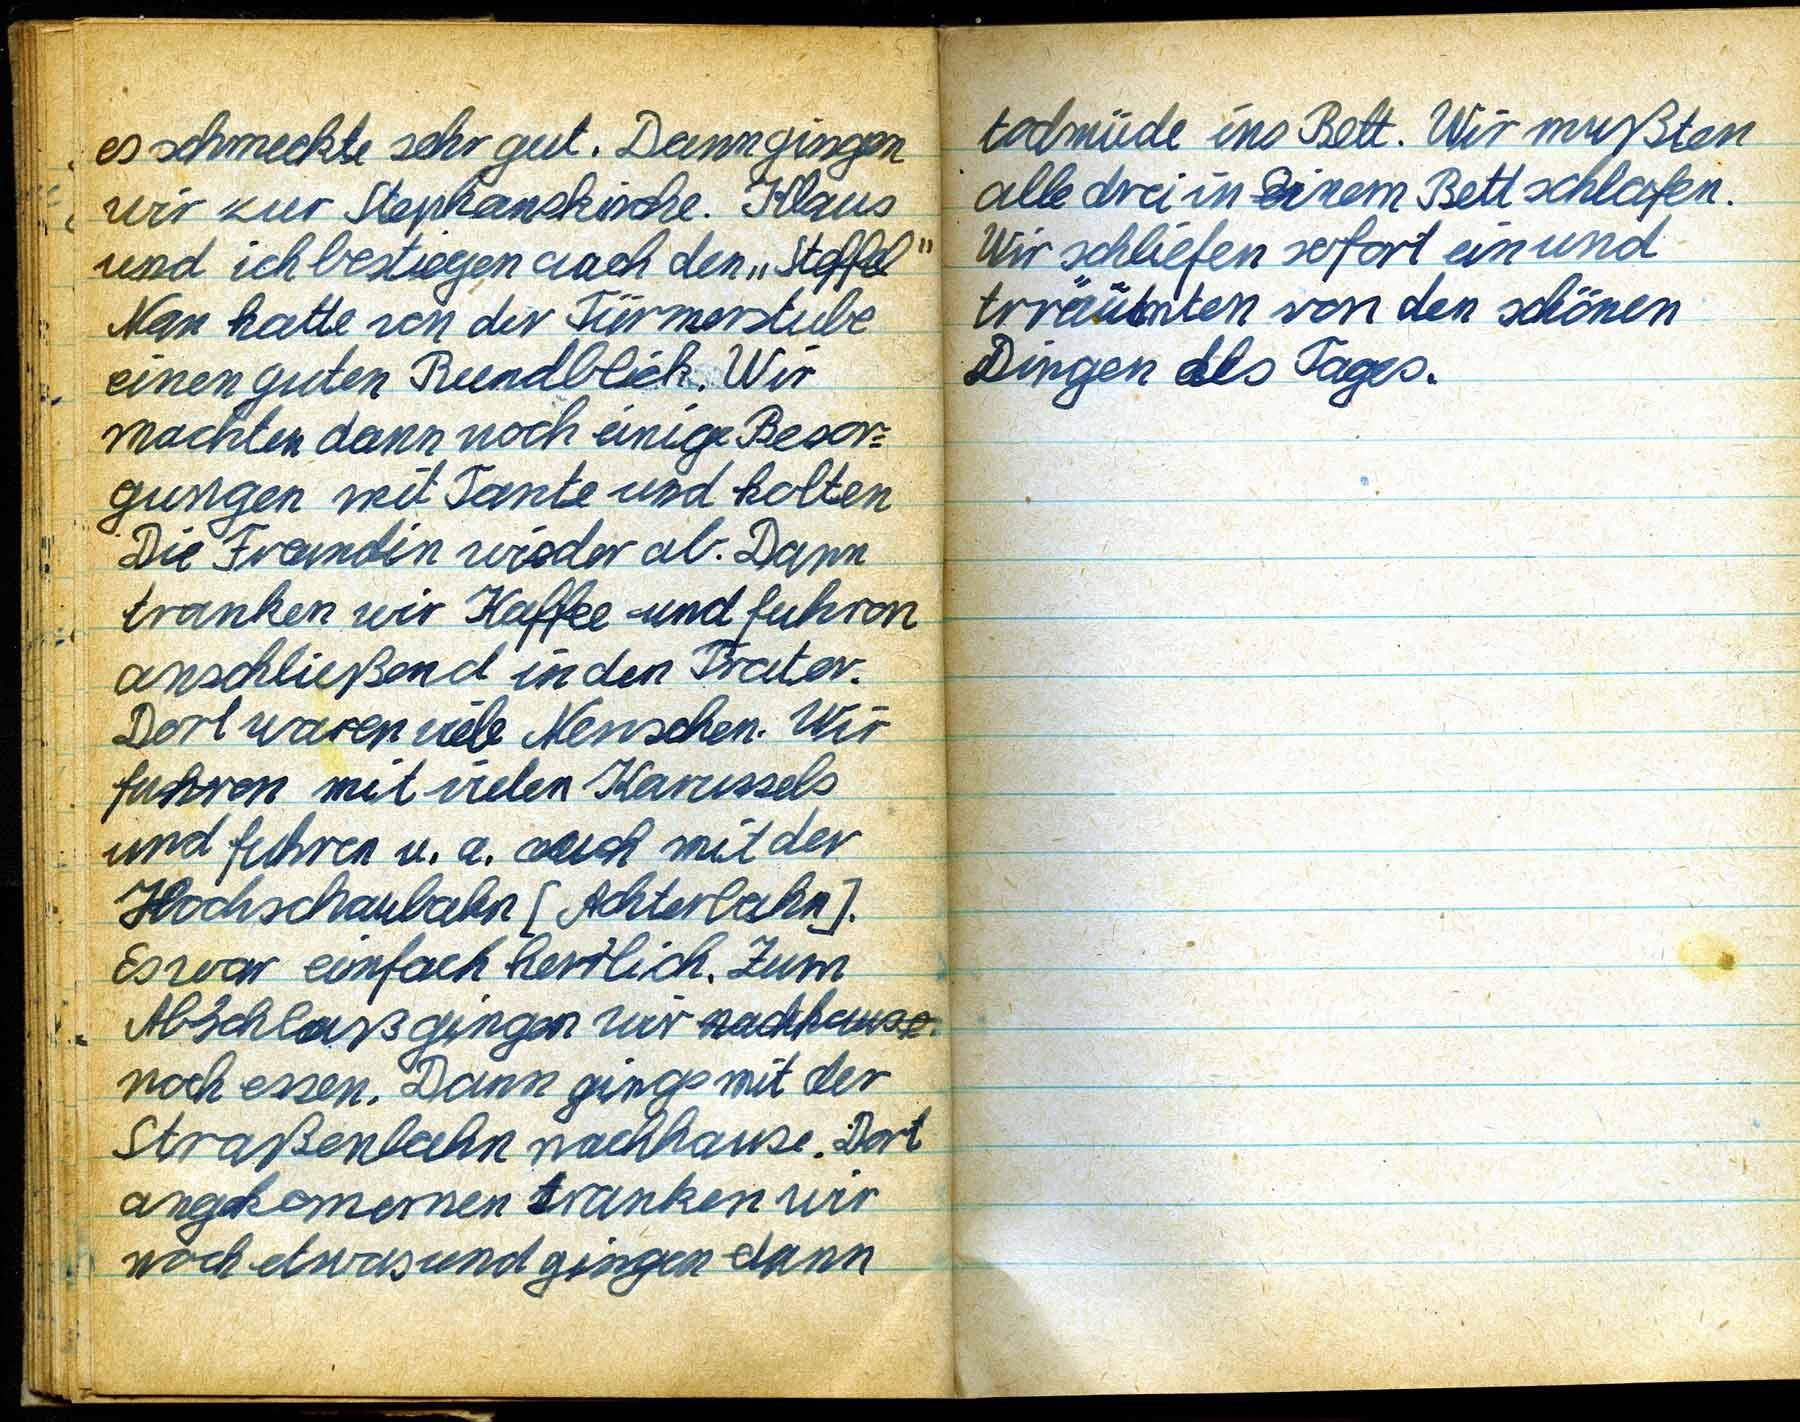 es schmeckte sehr gut. Dann gingen
wir zur Stephanskirche. Klaus
und ich bestiegen auch den „Steffel"
Man hatte von der Türmerstube
einen guten Rundblick. Wir
machten dann noch einige Besor=
gungen mit Tante und holten
Die Freundin wieder ab. Dann
tranken wir Kaffee und fuhren
anschließend in den Prater.
Dort waren viele Menschen. Wir
fuhren mit vielen Karussels
und fuhren u. a. auch mit der
Hochschaubahn [Achterbahn].
Es war einfach herrlich. Zum
Abschluß gingen wir nachhause.
noch essen. Dann gings mit der
Straßenbahn nachhause. Dort
angekommen tranken wir
noch etwas und gingen dann
todmüde ins Bett. Wir mußten
alle drei in Einem Bett schlafen.
Wir schliefen sofort ein und
träumten von den schönen
Dingen des Tages.